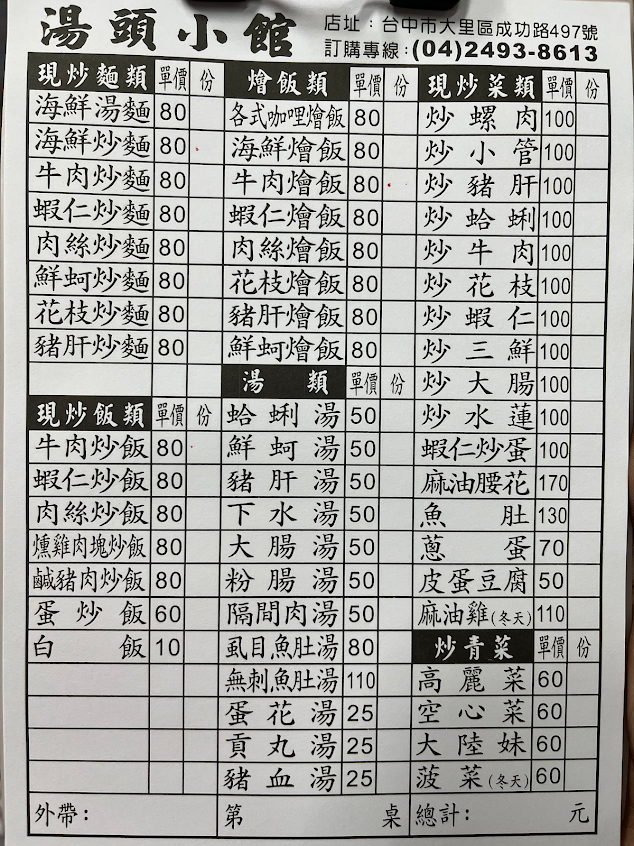 湯頭小館
店址：台中市大里區成功路497號
訂購專線：(04)2493-8613
現炒麵類 單價 份
海鮮湯麵 80
海鮮炒麵 80
牛肉炒麵 80
蝦仁炒麵 80
肉絲炒麵 80
鮮蚵炒麵 80
花枝炒麵 80
豬肝炒麵 80
現炒飯類 單價 份
牛肉炒飯 80
蝦仁炒飯 80
肉絲炒飯 80
燻雞肉塊炒飯 80
鹹豬肉炒飯 80
蛋炒飯 60
白飯 10
燴飯類 單價 份
各式咖哩燴飯 80
海鮮燴飯 80
牛肉燴飯 80
蝦仁燴飯 80
肉絲燴飯 80
花枝燴飯 80
豬肝燴飯 80
鮮蚵燴飯 80
湯類 單價 份
蛤蜊湯 50
鮮蚵湯 50
豬肝湯 50
下水湯 50
大腸湯 50
粉腸湯 50
隔間肉湯 50
虱目魚肚湯 80
無刺魚肚湯 110
蛋花湯 25
貢丸湯 25
豬血湯 25
現炒菜類 單價 份
炒螺肉 100
炒小管 100
炒豬肝 100
炒蛤蜊 100
炒牛肉 100
炒花枝 100
炒蝦仁 100
炒三鮮 100
炒大腸 100
炒水蓮 100
蝦仁炒蛋 100
麻油腰花 170
魚肚 130
蔥蛋 70
皮蛋豆腐 50
麻油雞(冬天) 110
炒青菜 單價 份
高麗菜 60
空心菜 60
大陸妹 60
菠菜(冬天) 60
外帶： 第 桌 總計： 元